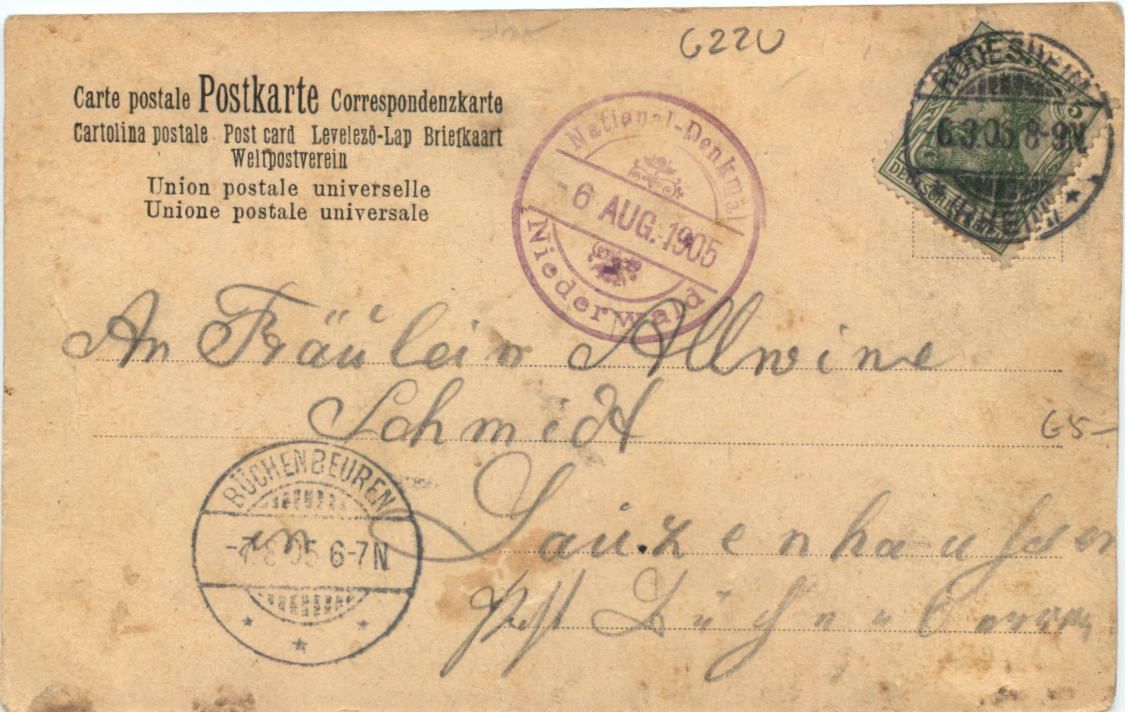 G220
Carte postale Postkarte Correspondenzkarte
Cartolina postale Post card Levelező-Lap Briefkaart
Weltpostverein
Union postale universelle
Unione postale universale
National-Denkmal
-6 AUG. 1905
Niederwald
RÜDESHEIM
6.8.05 8-9N
An Fräulein Allwine
Schmidt
65-
BÜCHENBEUREN
-7.8 05 6-7N
Lautzenhausen
Post Büchenbeuren